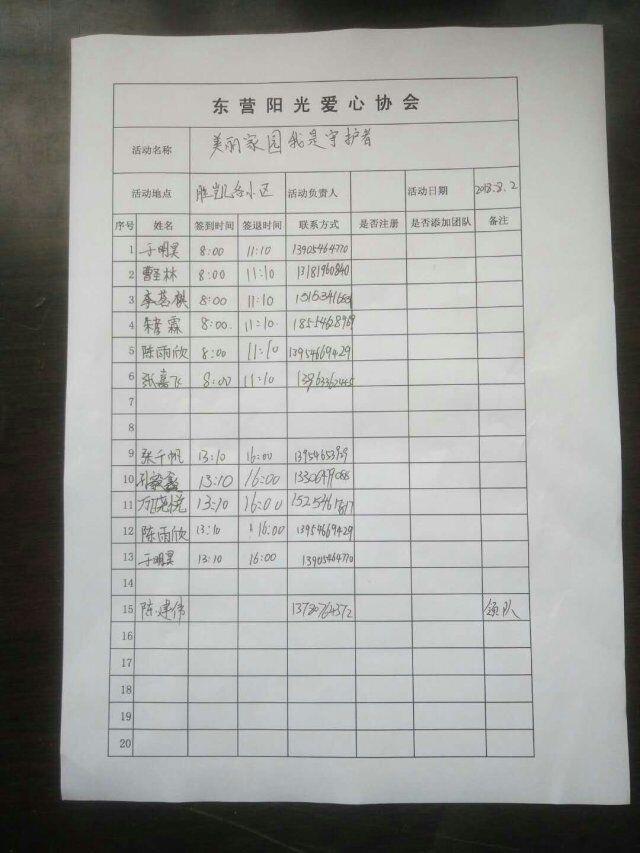 东营阳光爱心协会
活动名称 美丽家园我是守护者
活动地点 小区 活动负责人 活动日期 2018.8.2
序号 姓名 签到时间 签退时间 联系方式 是否注册 是否添加团队 备注
1 于明昊 8:00 11:10 13905464770
2 曹圣林 8:00 11:10 13181960840
3 8:00 11:10
4 8:00 11:10 18554628969
5 陈雨欣 8:00 11:10 13954669429
6 张嘉飞 8:00 11:10
7
8
9 张千帆 13:10 16:00
10 13:10 16:00
11 13:10 16:00
12 陈雨欣 13:10 16:00 13954669429
13 于明昊 13:10 16:00 13905464770
14
15 陈建伟 领队
16
17
18
19
20